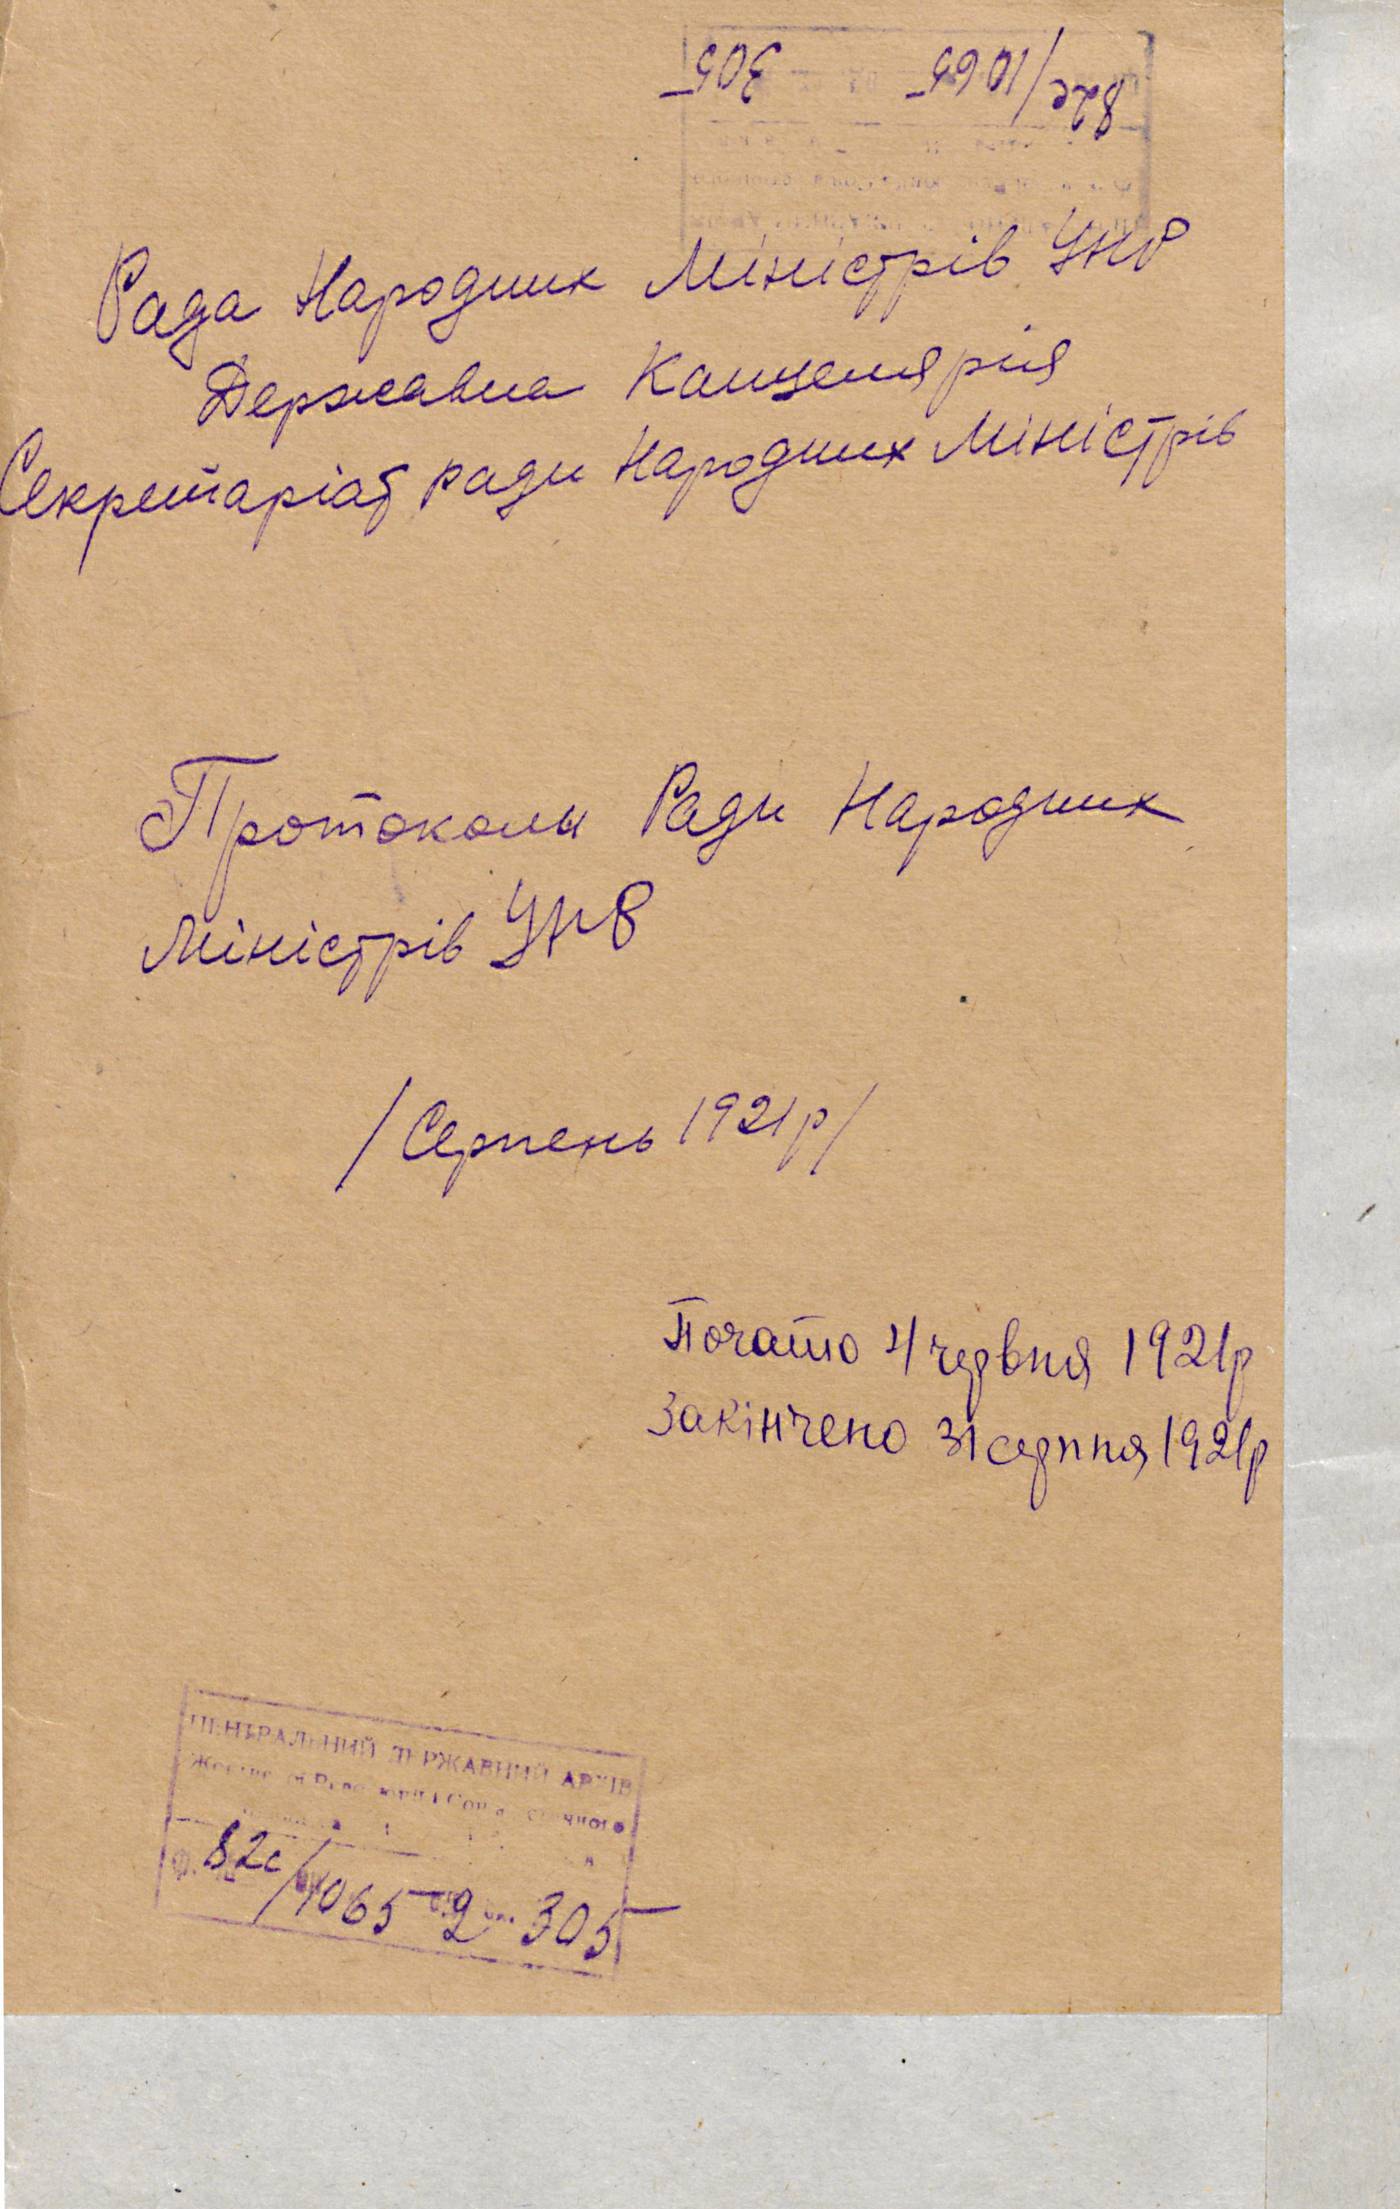 82с/1065 305
Рада Народних Міністрів УНР
Державна Канцелярія
Секретаріат ради Народних Міністрів
Протоколи Ради Народних
Міністрів УНР
/Серпень 1921р/
Почато 4 червня 1921р
Закінчено 31 серпня 1921р
ЦЕНТРАЛЬНИЙ ДЕРЖАВНИЙ АРХІВ
Жовтневої Революції і Соціалістичного
Ф. № 82с/1065 оп. 2 од. зб. 305